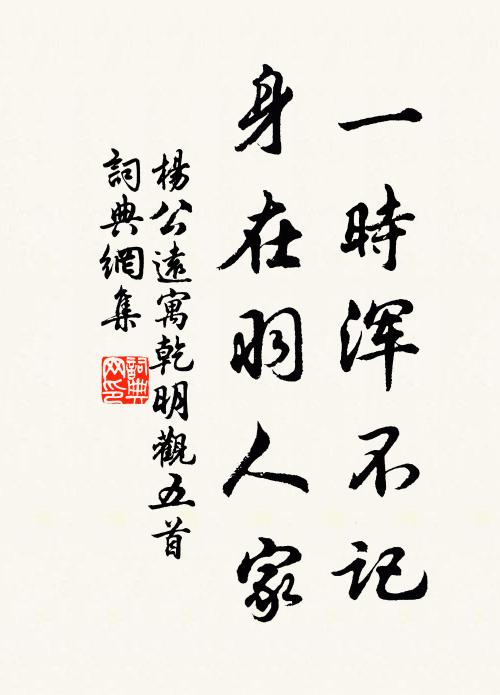 一時渾不記
身在羽人家
楊公遠寓乾明觀五首
詞典網集
詞典
网印